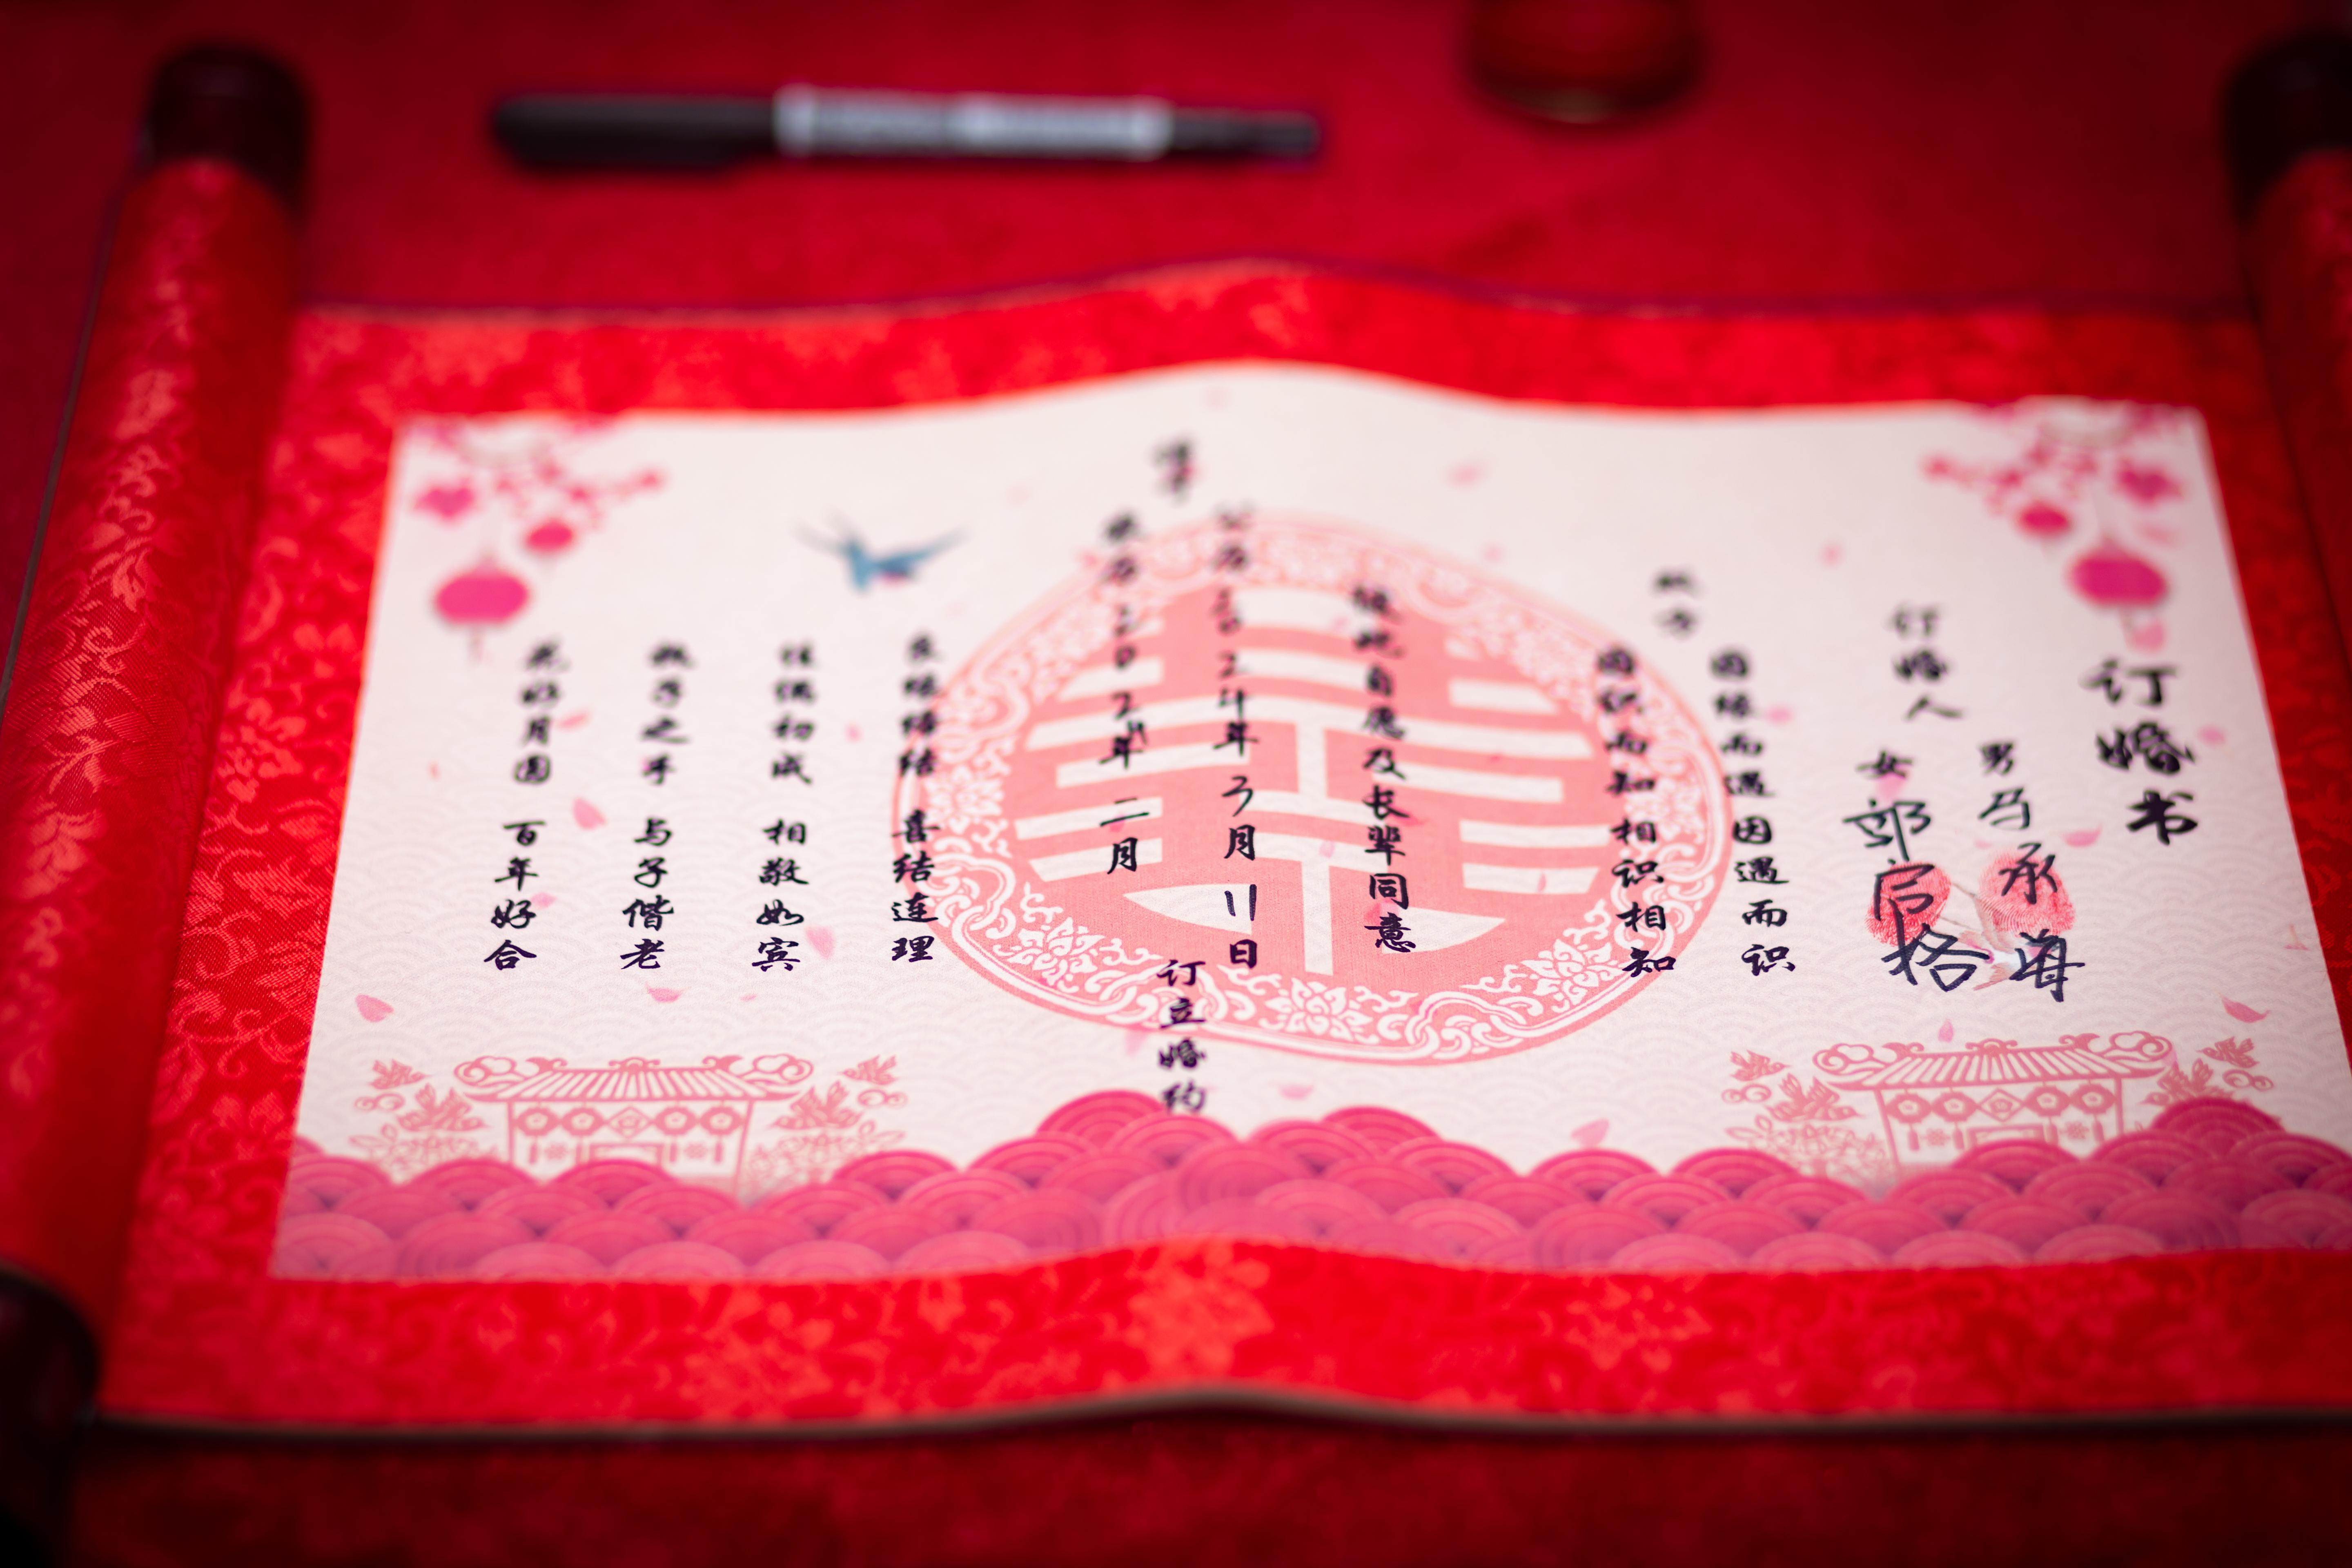 订婚书
订婚人
男 马承海
女 郭启格
双方
因缘而遇因遇而识
因识而知相识相知
彼此自愿及长辈同意
谨于
公历二〇24年3月11日
农历二〇24年二月
订立婚约
良缘缔结 喜结连理
佳偶初成 相敬如宾
执子之手 与子偕老
花好月圆 百年好合